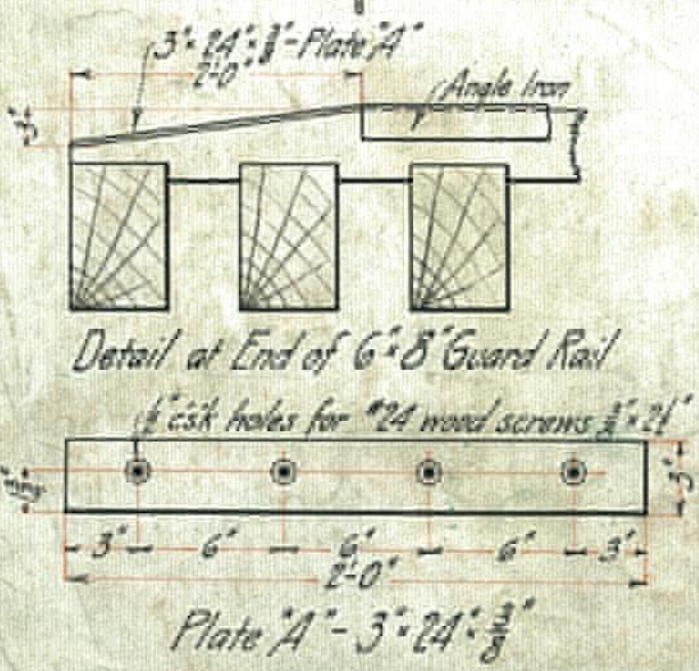 3"×24"×3/8"-Plate "A"
2'-0"
Angle Iron
Detail at End of 6"×8" Guard Rail
csk holes for #24 wood screws
3"
3" 6" 6" 6" 3"
2'-0"
Plate "A" - 3"×24"×3/8"